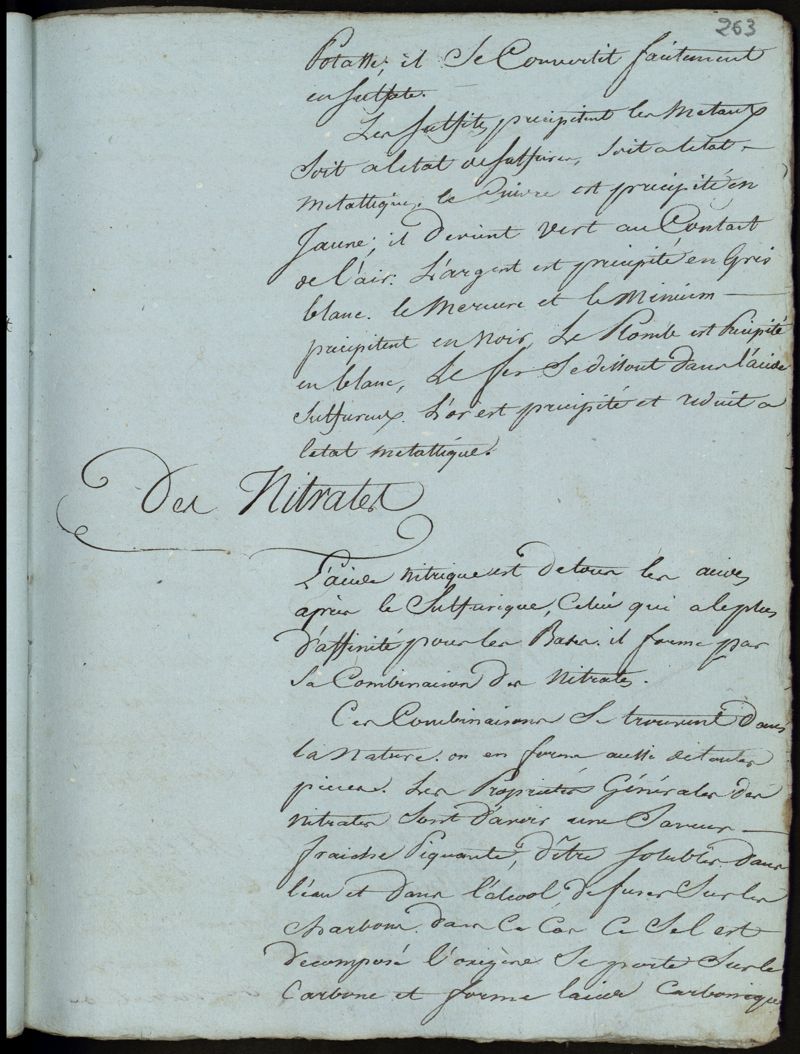 263
Potasse; il Se Convertit faitement
en sulfate.
Les sulfites precipitent les Metaux
Soit a letat de Sulfures, Soit a letat
Metallique; le Cuivre est precipité en
Jaune; il devient vert au Contact
de l'air. L'argent est precipité en Gris
blanc. le Mercure et le Minium
precipitent en Noir, Le Plomb est Precipité
en blanc, Le fer Se dissout dans l'acide
Sulfureux. L'or est precipité et reduit a
letat metallique.
Des Nitrates
L'acide Nitrique est de tous les acides
après le Sulfurique, Celui qui a le plus
d'affinité pour les Bases. il forme par
Sa Combinaison des Nitrates.
Ces Combinaisons Se trouvent Dans
la Nature. on en forme aussi de toutes
pieces. Les Propriétés Générales des
Nitrates Sont d'avoir une Saveur
fraiche Piquante, d'être Solubles Dans
l'eau et Dans l'alcool, de fuser Sur les
Charbons. dans Ce Cas Ce Sel est
Decomposé l'oxigène Se porte Sur le
Carbone et forme lacide Carbonique